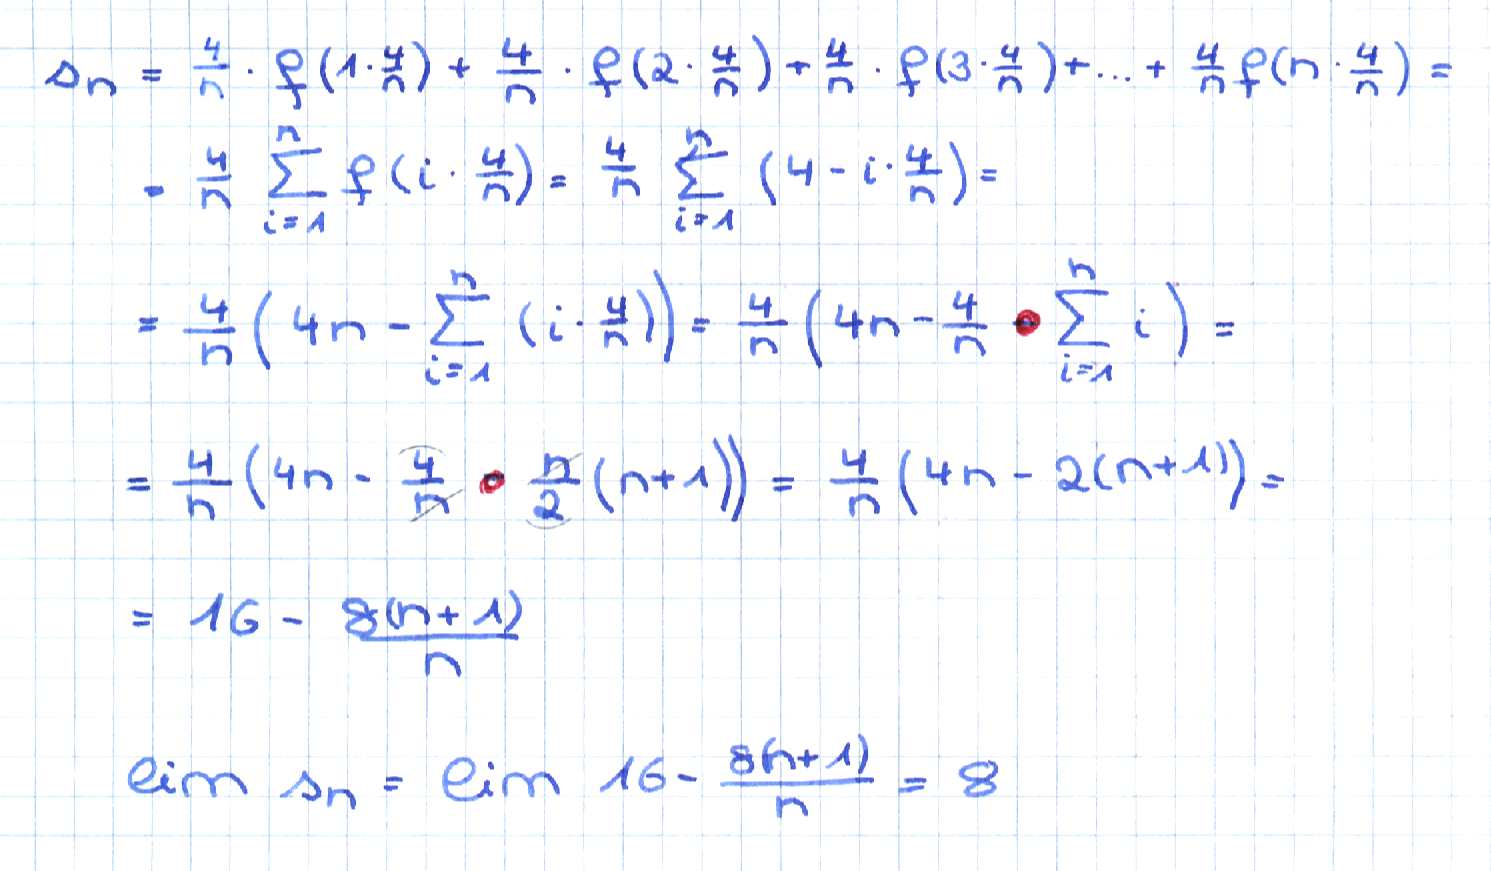 s_n = 4/n · f(1·4/n) + 4/n · f(2·4/n) + 4/n · f(3·4/n) + ... + 4/n f(n·4/n) =
= 4/n ∑_{i=1}^{n} f(i·4/n) = 4/n ∑_{i=1}^{n} (4 - i·4/n) =
= 4/n (4n - ∑_{i=1}^{n} (i·4/n)) = 4/n (4n - 4/n · ∑_{i=1}^{n} i) =
= 4/n (4n - 4/n · n/2 (n+1)) = 4/n (4n - 2(n+1)) =
= 16 - 8(n+1)/n
lim s_n = lim 16 - 8(n+1)/n = 8